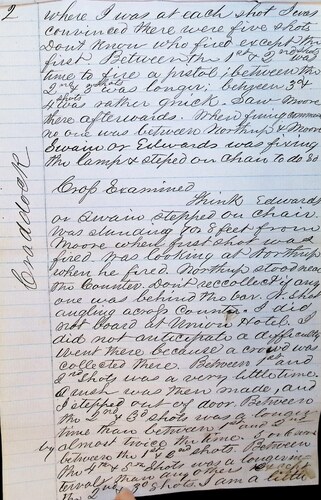 2
where I was at each shot I was
convinced there were five shots
Don't Know who fired except the
first Between the 1st & 2nd shot was
time to fire a pistol; between the
2nd & 3d shots was longer; between 3d &
4 was rather quick. Saw Moore
there afterwards. When firing commenced
no one was between Northup & Moore
Swain or Edwards was fixing
the lamp & steped on chair to do so
Craddock
Cross Examined
Think Edwards
or Swain stepped on chair
Was standing 7 or 8 feet from
Moore when first shot was
fired. Was looking at Northup
when he fired. Northup stood near
the Counter. Don't reccollect any
one was behind the bar. N. shot
angling across Counter. I did
not board at Union Hotel. I
did not anticipate a difficulty
went there because a crowd was
collected there. Between 1st and
2nd Shots was a very little time.
A rush was then made, and
I stepped out of door. Between
the 2nd & 3d shots was a longer
time than between 1st and 2nd
by almost twice the time
between the 1st & 2nd shots. Between
the 4th & 5th Shots was a longer in
terval than any
the 2nd shots I am a little